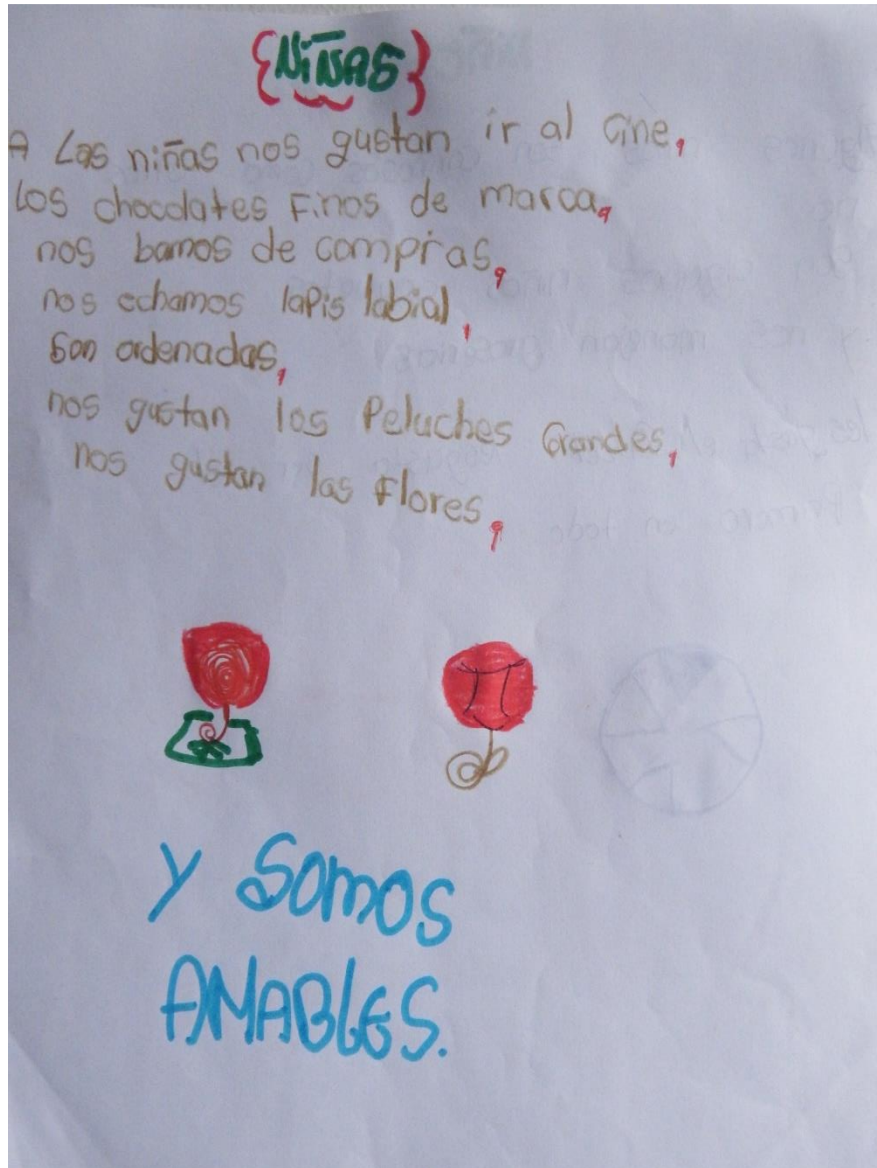 {NiÑAS}
A Las niñas nos gustan ir al Cine,
Los chocolates Finos de marca,
nos bamos de compras,
nos echamos lapis labial,
Son ordenadas,
nos gustan los Peluches Grandes,
nos gustan las Flores,
Y Somos
AMABLES.